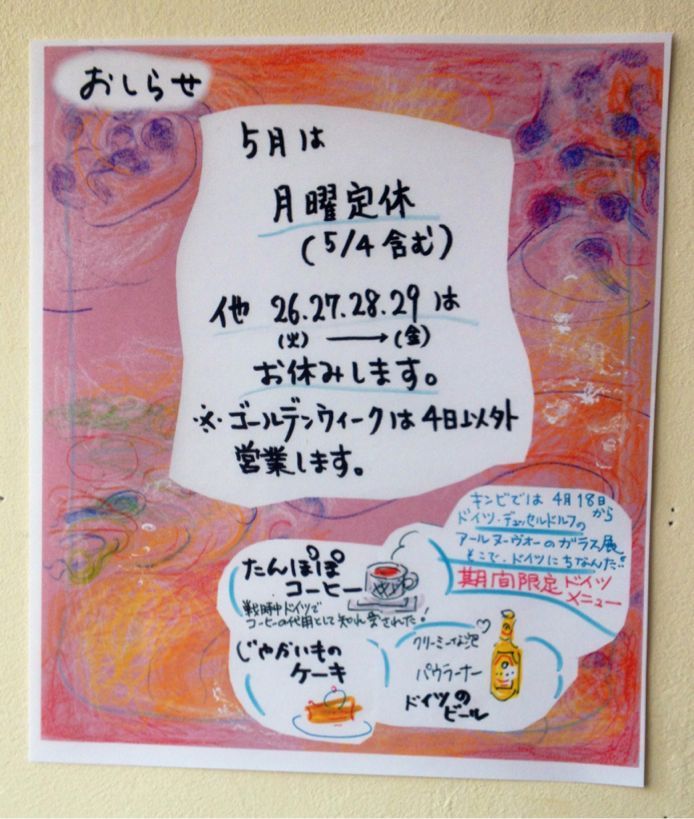 おしらせ
5月は
月曜定休
(5/4 含む)
他 26.27.28.29 は
(火) → (金)
お休みします。
※ゴールデンウィークは4日以外
営業します。
キンビでは 4月18日から
ドイツ・デュッセルドルフの
アールヌーヴォーのガラス展
そこで、ドイツにちなんだ!!
期間限定ドイツ
メニュー
たんぽぽ
コーヒー
戦時中ドイツで
コーヒーの代用として知れ愛された!
じゃがいもの
ケーキ
クリーミーな泡
パウラーナー
ドイツの
ビール